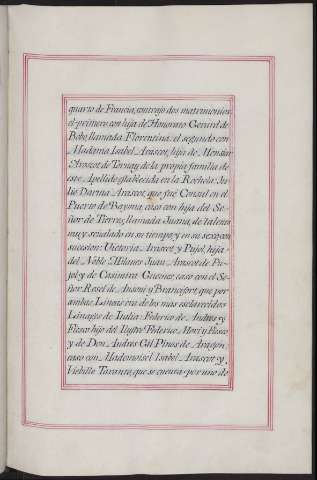 quarto de Francia, contrajo dos matrimonios
el primero con hija de Honorato Gerard de
Bobe, llamada Florentina: el segundo con
Madama Isabel Arascot, hija de Monsiur
Arascot de Tornay, de la propia familia de
este Apellido establecida en la Rochela: Ju-
lio Darnia Arascot, que fué Consul en el
Puerto de Bayona, casó con hija del Se-
ñor de Tierres, llamada Juana, de talento
muy señalado en su tiempo, y en su sexo, con
sucesion: Victoria Arascot y Pujol, hija
del Noble Milanes Juan Arascot de Pu-
jol, y de Casimira Guesnes, casó con el Se-
ñor Rosel de Ansoni y Brancifort, que por
ambas Lineas era de los mas esclarecidos
Linages de Italia: Federico de Andres y
Flesco hijo del Ilustre Federico Mori y Flesco
y de Don Andres Gil Pinos de Aragon,
casó con Mademoisel Isabel Arascot y
Vichille Taranto, que se cuenta por uno de